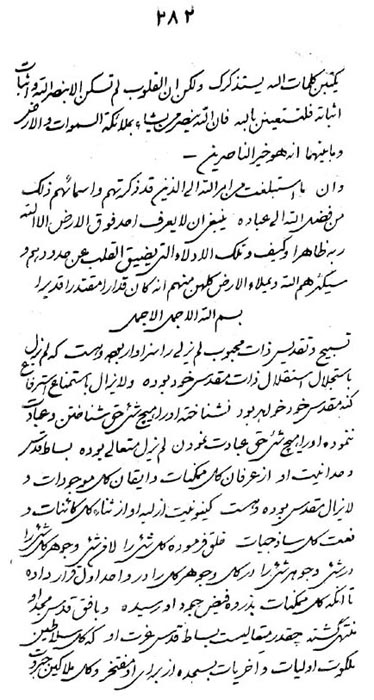 ۲۸۲
یکتبن کلمات الله یستذکرک ولکن ان القلوب لم تسکن الا بنصر الله و اثبات
اثباته فلتستعین بالله فان الله ینصر من یشاء بملائکة السموات والارض
وما بینهما انه هو خیر الناصرین
وان ما استبلغت من امر الله الی الذین قد ذکرتهم و اسمائهم ذلک
من فضل الله الی عباده ینبغی ان لا یعرف احد فوق الارض الا الله
ربه ظاهرا وکیف و تلک الادلاء التی یضیق القلب عن حدودهم و
سیکثرهم الله و یملاء الارض کلهن منهم انه کان قدارا مقتدرا قدیرا
بسم الله الاجمل الاجمل
تسبیح و تقدیس ذات محبوب لم یزلی را سزاوار بوده و هست که لم یزل
باستجلال استقلال ذات مقدس خود بوده ولا یزال باستمناع استرفاع
کنه مقدس خود خواهد بود نشناخته او را هیچ شئ حق شناختن و عبادت
ننموده او را هیچ شئ حق عبادت نمودن لم یزل متعالی بوده بساط قدس
وحدانیت او از عرفان کل ممکنات و ایقان کل موجودات و
لا یزال مقدس بوده و هست کینونیت ازلیه او از ثناء کل کائنات و
نعت کل ساذجیات خلق فرموده کل شئ را لا من شئ و جوهر کل شئ را
در شئ و جوهر شئ را در کل و جوهر کل را در واحد اول قرار داده
تا آنکه کل ممکنات بذروه فیض جود او رسیده و بافق قدس مجد او
منتهی گشته چقدر متعالیست بساط قدس عزت او که کل سلاطین
ملکوت اولیات و اخریات بسجده از برای او مفتخر و کل ملاکین جبروت